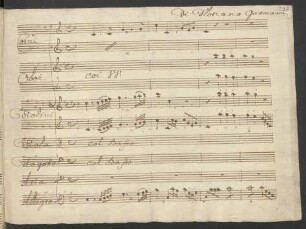 Di Floriano Gasmann
Corni
Oboi
col VV
Violini
Viola
col Basso
Fagotto
col Basso
Aria
Allegro